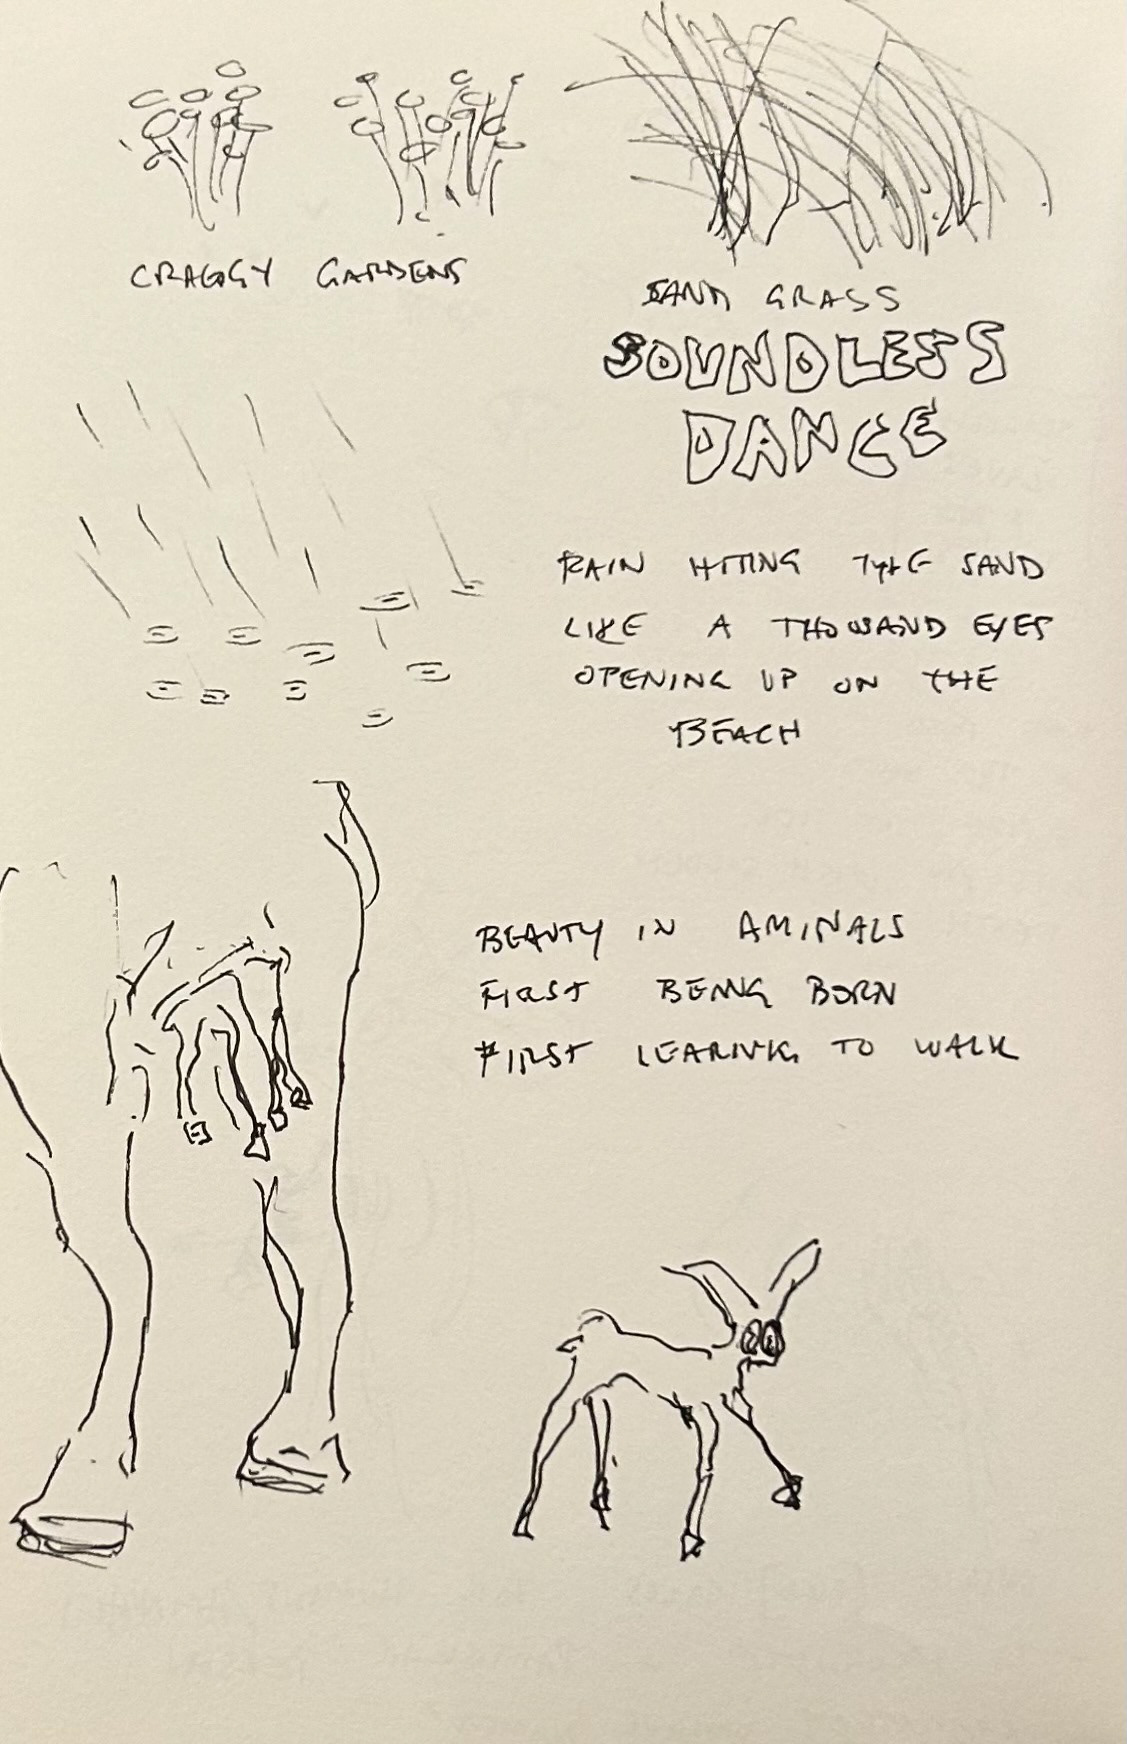 CRAGGY GARDENS
SAND GRASS
SOUNDLESS
DANCE
RAIN HITTING THE SAND
LIKE A THOUSAND EYES
OPENING UP ON THE
BEACH
BEAUTY IN AMINALS
FIRST BEING BORN
FIRST LEARING TO WALK